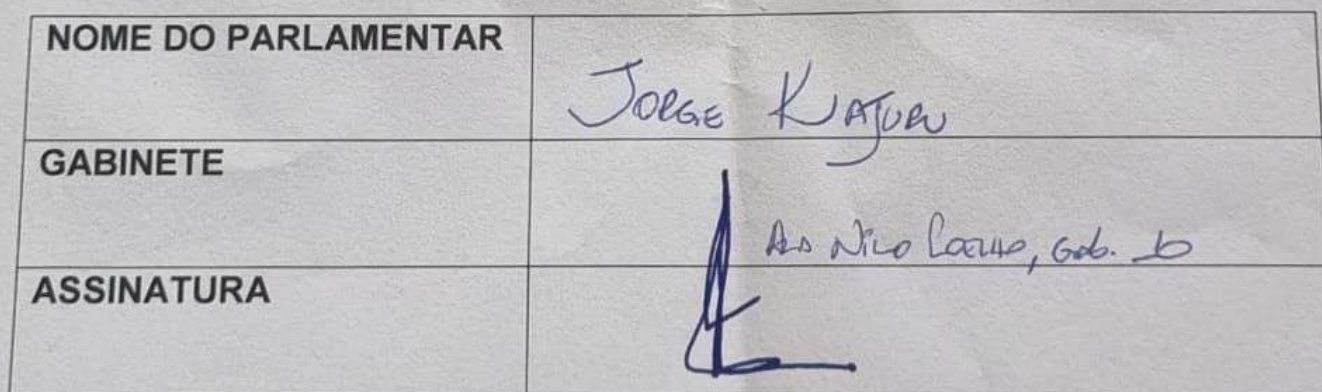 NOME DO PARLAMENTAR
JORGE KAJURU
GABINETE
ALA NILO COELHO, Gab.
ASSINATURA